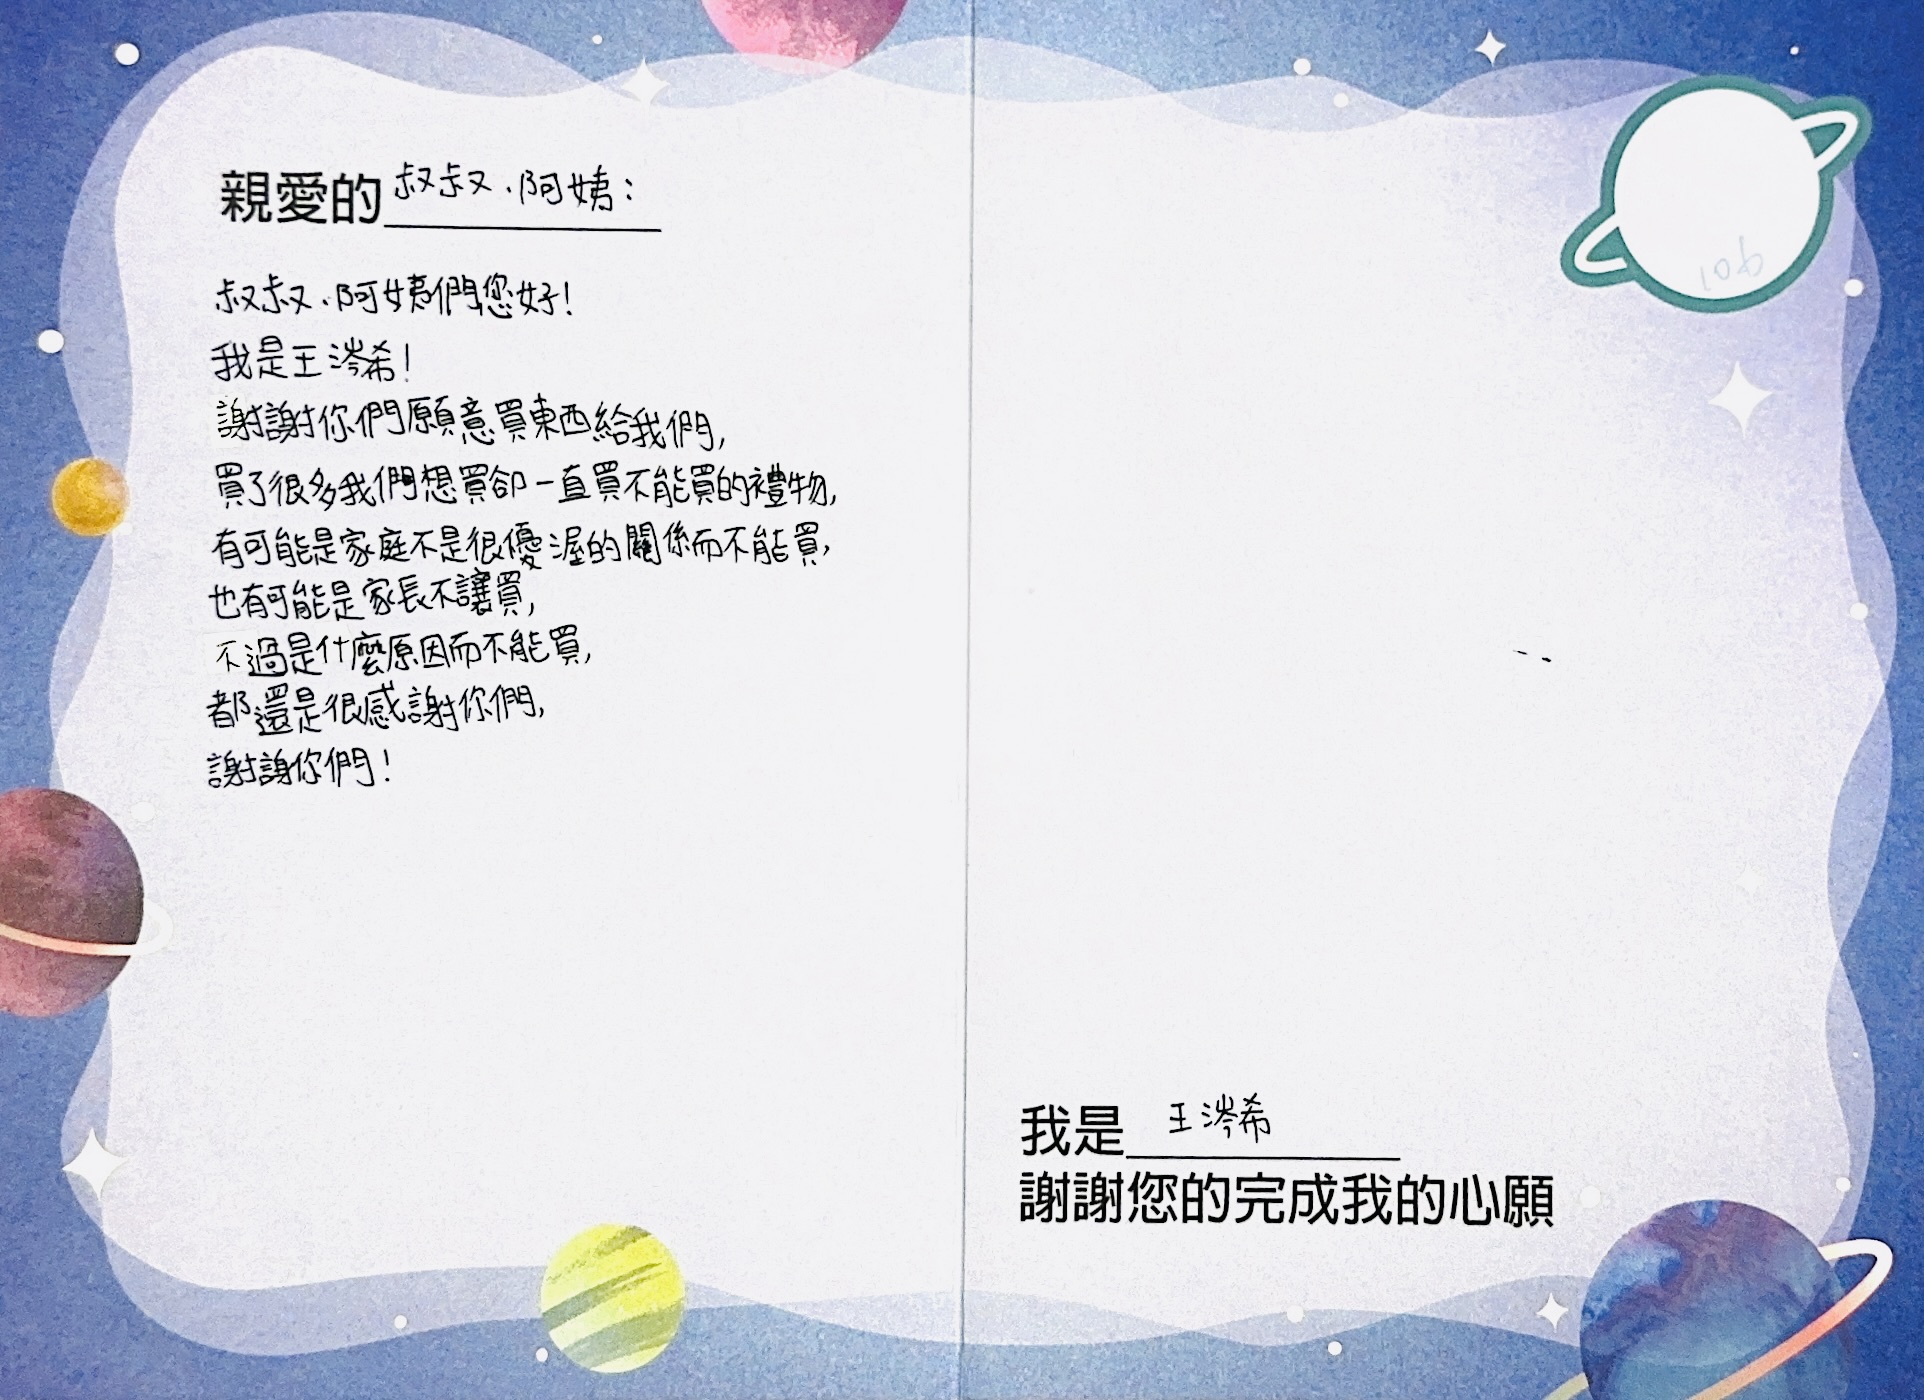 親愛的叔叔、阿姨：
叔叔、阿姨們您好！
我是王涔希！
謝謝你們願意買東西給我們，
買了很多我們想買卻一直買不能買的禮物，
有可能是家庭不是很優渥的關係而不能買，
也有可能是家長不讓買，
不過是什麼原因而不能買，
都還是很感謝你們，
謝謝你們！
106
我是 王涔希
謝謝您的完成我的心願